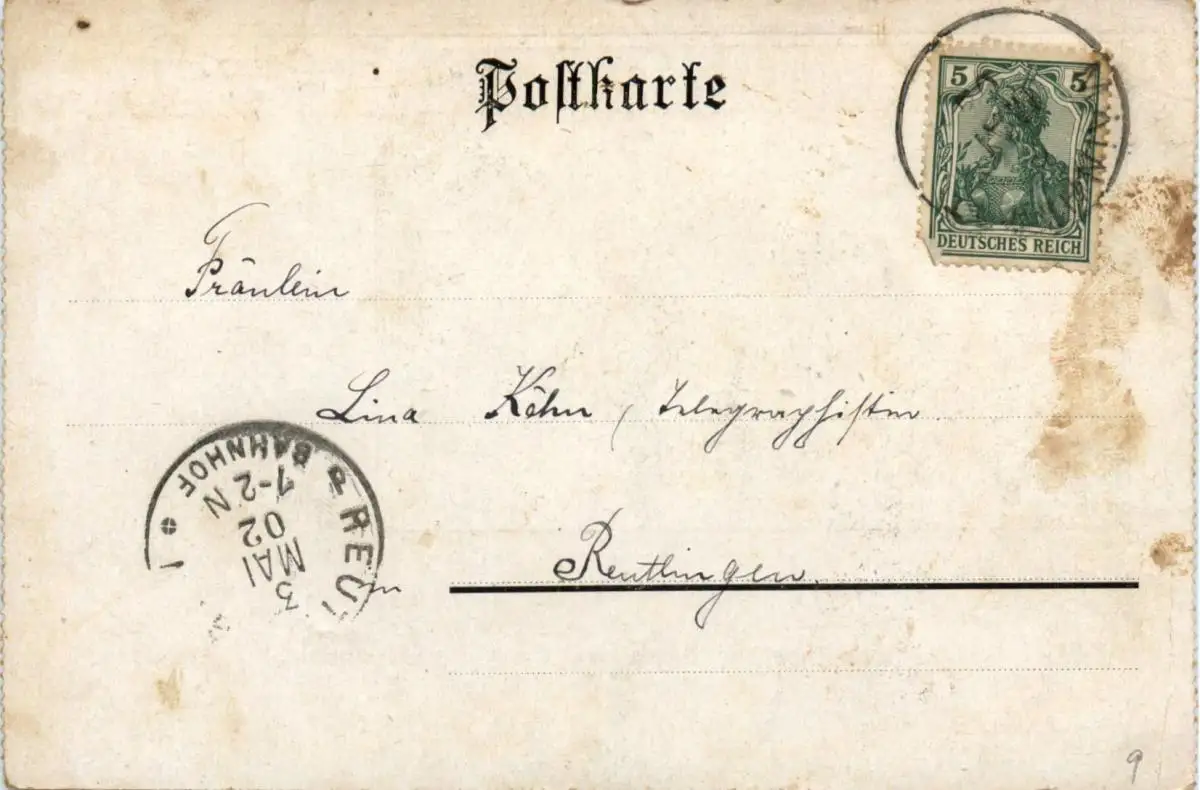 Postkarte
5 5
DEUTSCHES REICH
Fräulein
Lina Köhn, Telegraphistin
Reutlingen.
in
REU
BAHNHOF
3
MAI
02
1-2 N
9